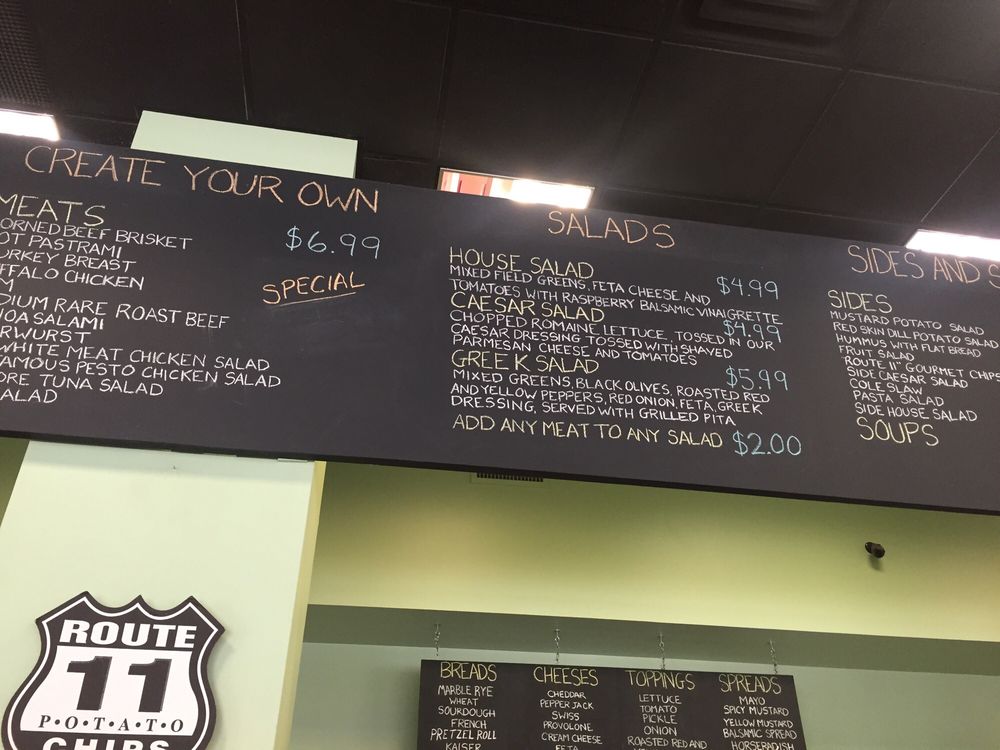 CREATE YOUR OWN
MEATS
ORNED BEEF BRISKET
OT PASTRAMI
URKEY BREAST
FFALO CHICKEN
M
DIUM RARE ROAST BEEF
NOA SALAMI
RWURST
WHITE MEAT CHICKEN SALAD
AMOUS PESTO CHICKEN SALAD
ORE TUNA SALAD
ALAD
$6.99
SPECIAL
SALADS
HOUSE SALAD $4.99
MIXED FIELD GREENS, FETA CHEESE AND
TOMATOES WITH RASPBERRY BALSAMIC VINAIGRETTE
CAESAR SALAD $4.99
CHOPPED ROMAINE LETTUCE, TOSSED IN OUR
CAESAR DRESSING TOSSED WITH SHAVED
PARMESAN CHEESE AND TOMATOES
GREEK SALAD $5.99
MIXED GREENS, BLACK OLIVES, ROASTED RED
AND YELLOW PEPPERS, RED ONION FETA, GREEK
DRESSING, SERVED WITH GRILLED PITA
ADD ANY MEAT TO ANY SALAD $2.00
SIDES AND S
SIDES
MUSTARD POTATO SALAD
RED SKIN DILL POTATO SALAD
HUMMUS WITH FLAT BREAD
FRUIT SALAD
ROUTE 11" GOURMET CHIPS
SIDE CAESAR SALAD
COLE SLAW
PASTA SALAD
SIDE HOUSE SALAD
SOUPS
ROUTE
11
P·O·T·A·T·O
CHIPS
BREADS
MARBLE RYE
WHEAT
SOURDOUGH
FRENCH
PRETZEL ROLL
KAISER
CHEESES
CHEDDAR
PEPPER JACK
SWISS
PROVOLONE
CREAM CHEESE
FETA
TOPPINGS
LETTUCE
TOMATO
PICKLE
ONION
ROASTED RED AND
SPREADS
MAYO
SPICY MUSTARD
YELLOW MUSTARD
BALSAMIC SPREAD
HORSERADISH